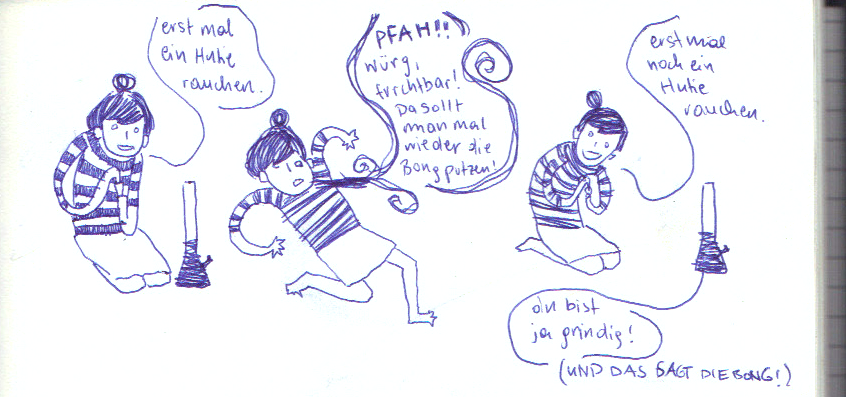 erst mal
ein Hutie
rauchen.
PFAH!!
würg,
furchtbar!
Da sollt
man mal
wieder die
Bong putzen!
erst mal
noch ein
Hutie
rauchen.
du bist
ja grindig!
(UND DAS SAGT DIE BONG!)